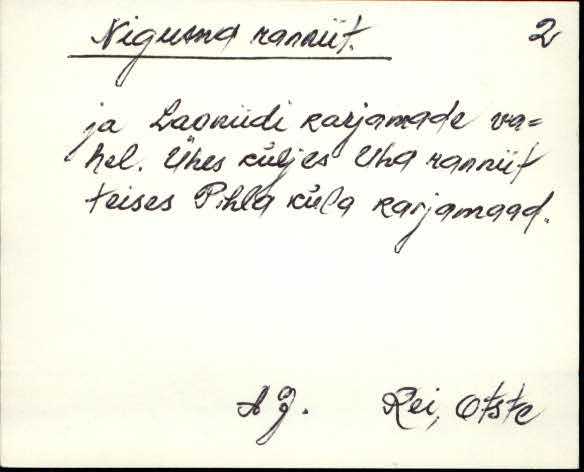 Nigusma ranniit. 2
ja Laoniidi karjamade va=
hel. Ühes küljes Uha ranniit
teises Pihla küla karjamaad.
A J. Rei, Otste